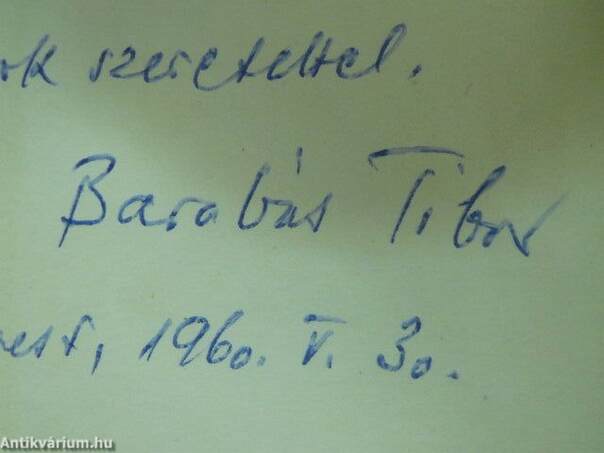 ok szeretettel.
Barabás Tibor
est, 1960. V. 30.
Antikvárium.hu